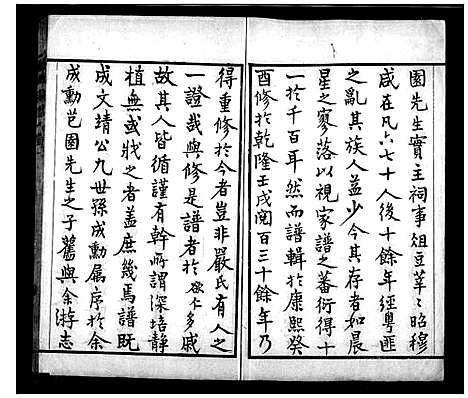 園先生實主祠事俎豆莘莘昭穆
咸在凡六七十人後十餘年經粵匪
之亂其族人益少今其存者如晨
星之寥落以視家譜之蕃衍得十
一於千百年然而譜輯於康熙癸
酉修於乾隆壬戌閱百三十餘年乃
得重修於今者豈非嚴氏有人之
一證哉與修是譜者於欲仁多戚
故其人皆循謹有幹所謂深培靜
植無或戕之者蓋庶幾焉譜既
成文靖公九世孫成勳屬序於余
成勳芑園先生之子舊與余游志